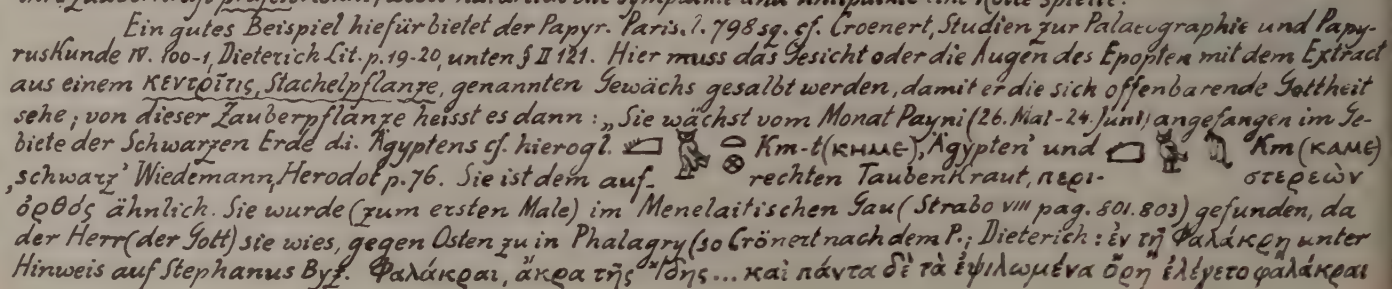 Ein gutes Beispiel hiefür bietet der Papyr. Paris. l. 798 sq. cf. Croenert, Studien zur Palaeographie und Papy-
ruskunde IV. 100-1, Dieterich Lit. p. 19-20, unten § II 121. Hier muss das Gesicht oder die Augen des Epopten mit dem Extract
aus einem κεντρῖτις, Stachelpflanze, genannten Gewächs gesalbt werden, damit er die sich offenbarende Gottheit
sehe; von dieser Zauberpflanze heisst es dann: „Sie wächst vom Monat Payni (26. Mai-24. Juni) angefangen im Ge-
biete der Schwarzen Erde d.i. Ägyptens cf. hierogl. Km-t (ⲕⲏⲙⲉ), ‚Ägypten' und Km (ⲕⲁⲙⲉ)
‚schwarz' Wiedemann, Herodot p. 76. Sie ist dem auf- rechten Taubenkraut, περι- στερεὼν
ὀρθός ähnlich. Sie wurde (zum ersten Male) im Menelaitischen Gau (Strabo VIII pag. 801. 803) gefunden, da
der Herr (der Gott) sie wies, gegen Osten zu in Phalagry (so Crönert nach dem P.; Dieterich: ἐν τῇ Φαλάκρῃ unter
Hinweis auf Stephanus Byz. Φαλάκραι, ἄκρα τῆς Ἴδης... καὶ πάντα δὲ τὰ ἐψιλωμένα ὄρη ἐλέγετο φαλάκραι